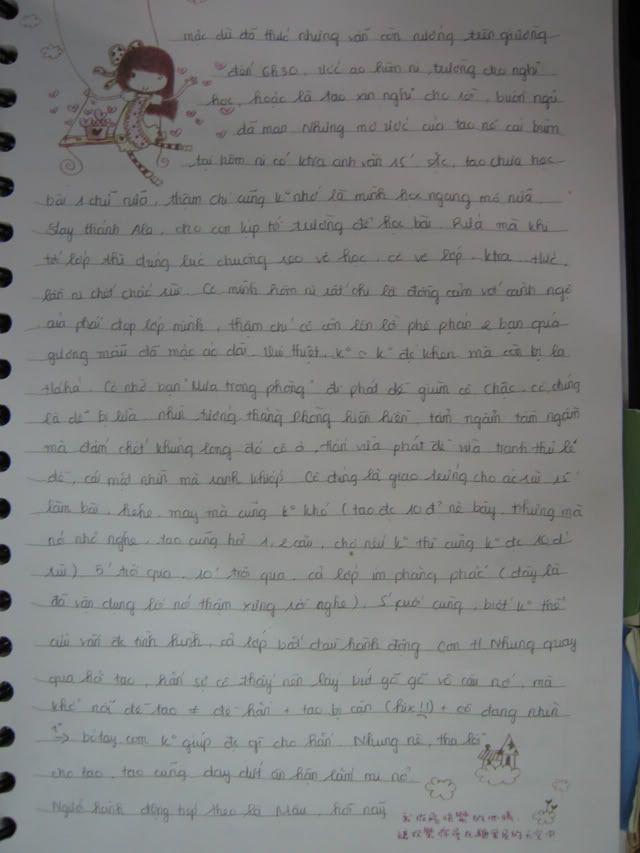 mặc dù đã thức nhưng vẫn còn nướng trên giường
đến 6h30, ước ao hôm ni, trường cho nghỉ
học, hoặc là tao xin nghỉ cho rồi, buồn ngủ
dã man Nhưng mơ ước của tao nó cái bùm
tại hôm ni có ktra anh văn 15' sặc, tao chưa học
bài 1 chữ nữa, thậm chí cũng k° nhớ là mình học ngang mô nữa
lạy thánh Ala, cho con kịp tới trường để học bài. Rứa mà khi
tới lớp thì đúng lúc chuông reo vô học, cô vô lớp ktra
lần ni chết chắc rồi. Cô mình hôm ni rất chi là đồng cảm với cảnh ngộ
của phái đẹp lớp mình, thậm chí cô còn lên lời phê phán 2 bạn quá
gương mẫu đã mặc áo dài k° k° đc khen mà còn bị la
Cô nhờ bạn "Mưa trong phòng" đi phát đề giùm cô Chậc, cô đúng
là dễ bị lừa nhìn tướng thằng Phong hiền hiền, tầm ngầm tầm ngầm
mà đấm chết khủng long đó cô ơ, hắn vừa phát đề vừa tranh thủ
đề, cái mặt nhìn mà ranh khiếp Cô đúng là giao trứng cho ác rùi 15'
làm bài, hehe, may mà cũng k° khó (tao đc 10 đ' nè bây, nhưng mà
nói nhỏ nghe, tao cũng hỏi 1, 2 câu, chớ nếu k° thì cũng k° đc 10 đ'
rùi) 5' trôi qua, 10' trôi qua, cả lớp im phăng phắc (đây là
đã vận dụng lối nói thậm xưng rồi nghe), 5' cuối cùng, biết k° thể
cứu vãn đc tình hình, cả lớp bắt đầu hành động Con H Nhung quay
qua hỏi tao, hắn sợ cô thấy nên lấy bút gõ gõ vô câu nớ, mà
khổ nỗi đề tao ≠ đề hắn + tao bị cận (hix!!) + cô đang nhìn
→ bó tay.com k° giúp đc gì cho hắn Nhung nè, tha lỗi
cho tao, tao cũng day dứt ân hận lắm mi nờ
Người hành động tiếp theo là Mậu, hồi nãy